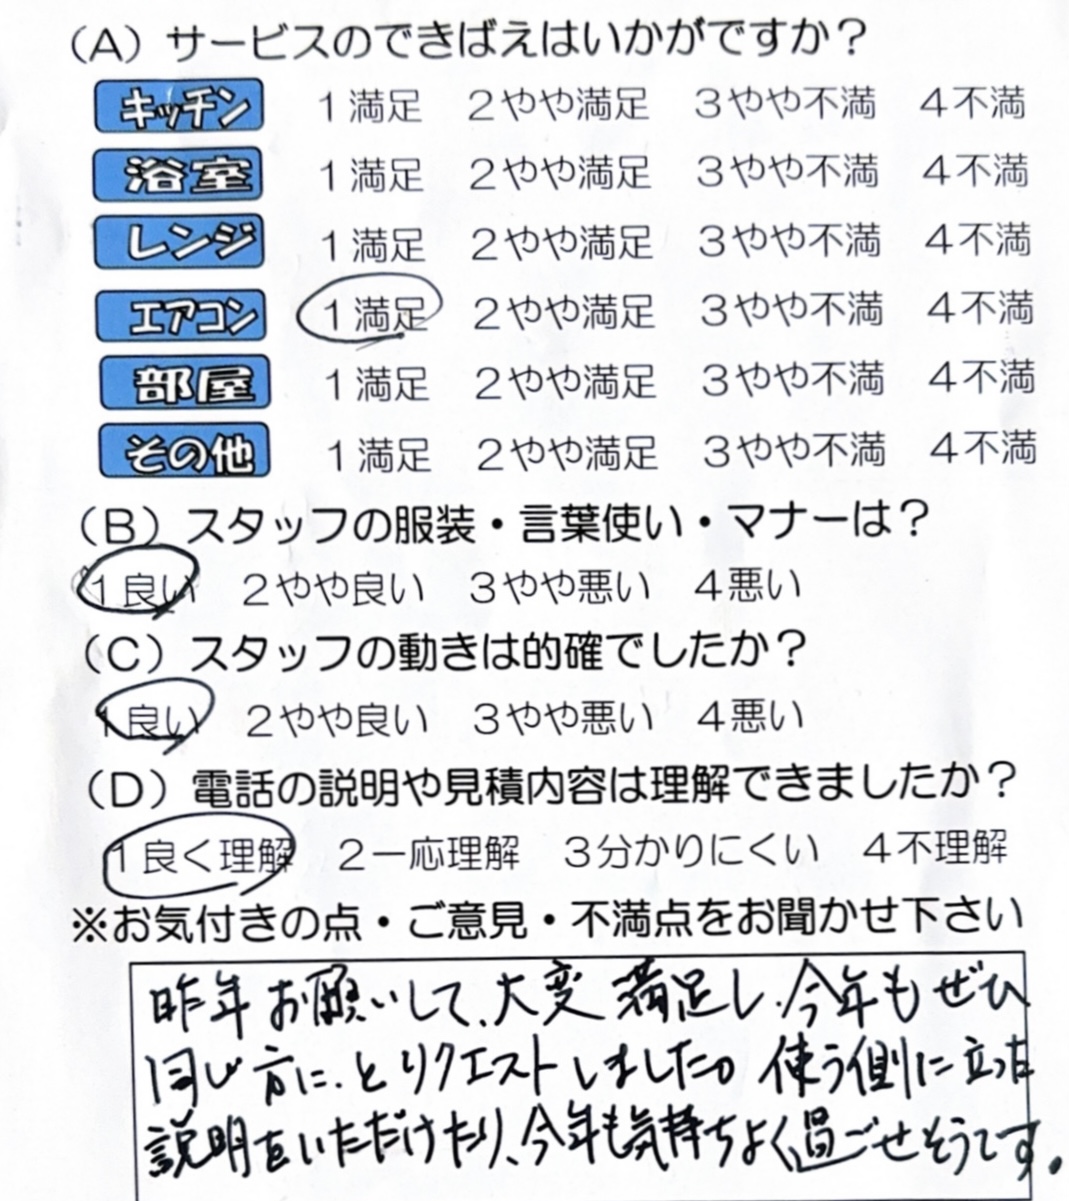 (A) サービスのできばえはいかがですか？
キッチン 1満足 2やや満足 3やや不満 4不満
浴室 1満足 2やや満足 3やや不満 4不満
レンジ 1満足 2やや満足 3やや不満 4不満
エアコン 1満足 2やや満足 3やや不満 4不満
部屋 1満足 2やや満足 3やや不満 4不満
その他 1満足 2やや満足 3やや不満 4不満
(B) スタッフの服装・言葉使い・マナーは？
1良い 2やや良い 3やや悪い 4悪い
(C) スタッフの動きは的確でしたか？
1良い 2やや良い 3やや悪い 4悪い
(D) 電話の説明や見積内容は理解できましたか？
1良く理解 2一応理解 3分かりにくい 4不理解
※お気付きの点・ご意見・不満点をお聞かせ下さい
昨年お願いして、大変満足し、今年もぜひ
同じ方に、とリクエストしました。使う側に立った
説明をいただけたり、今年も気持ちよく過ごせそうです。